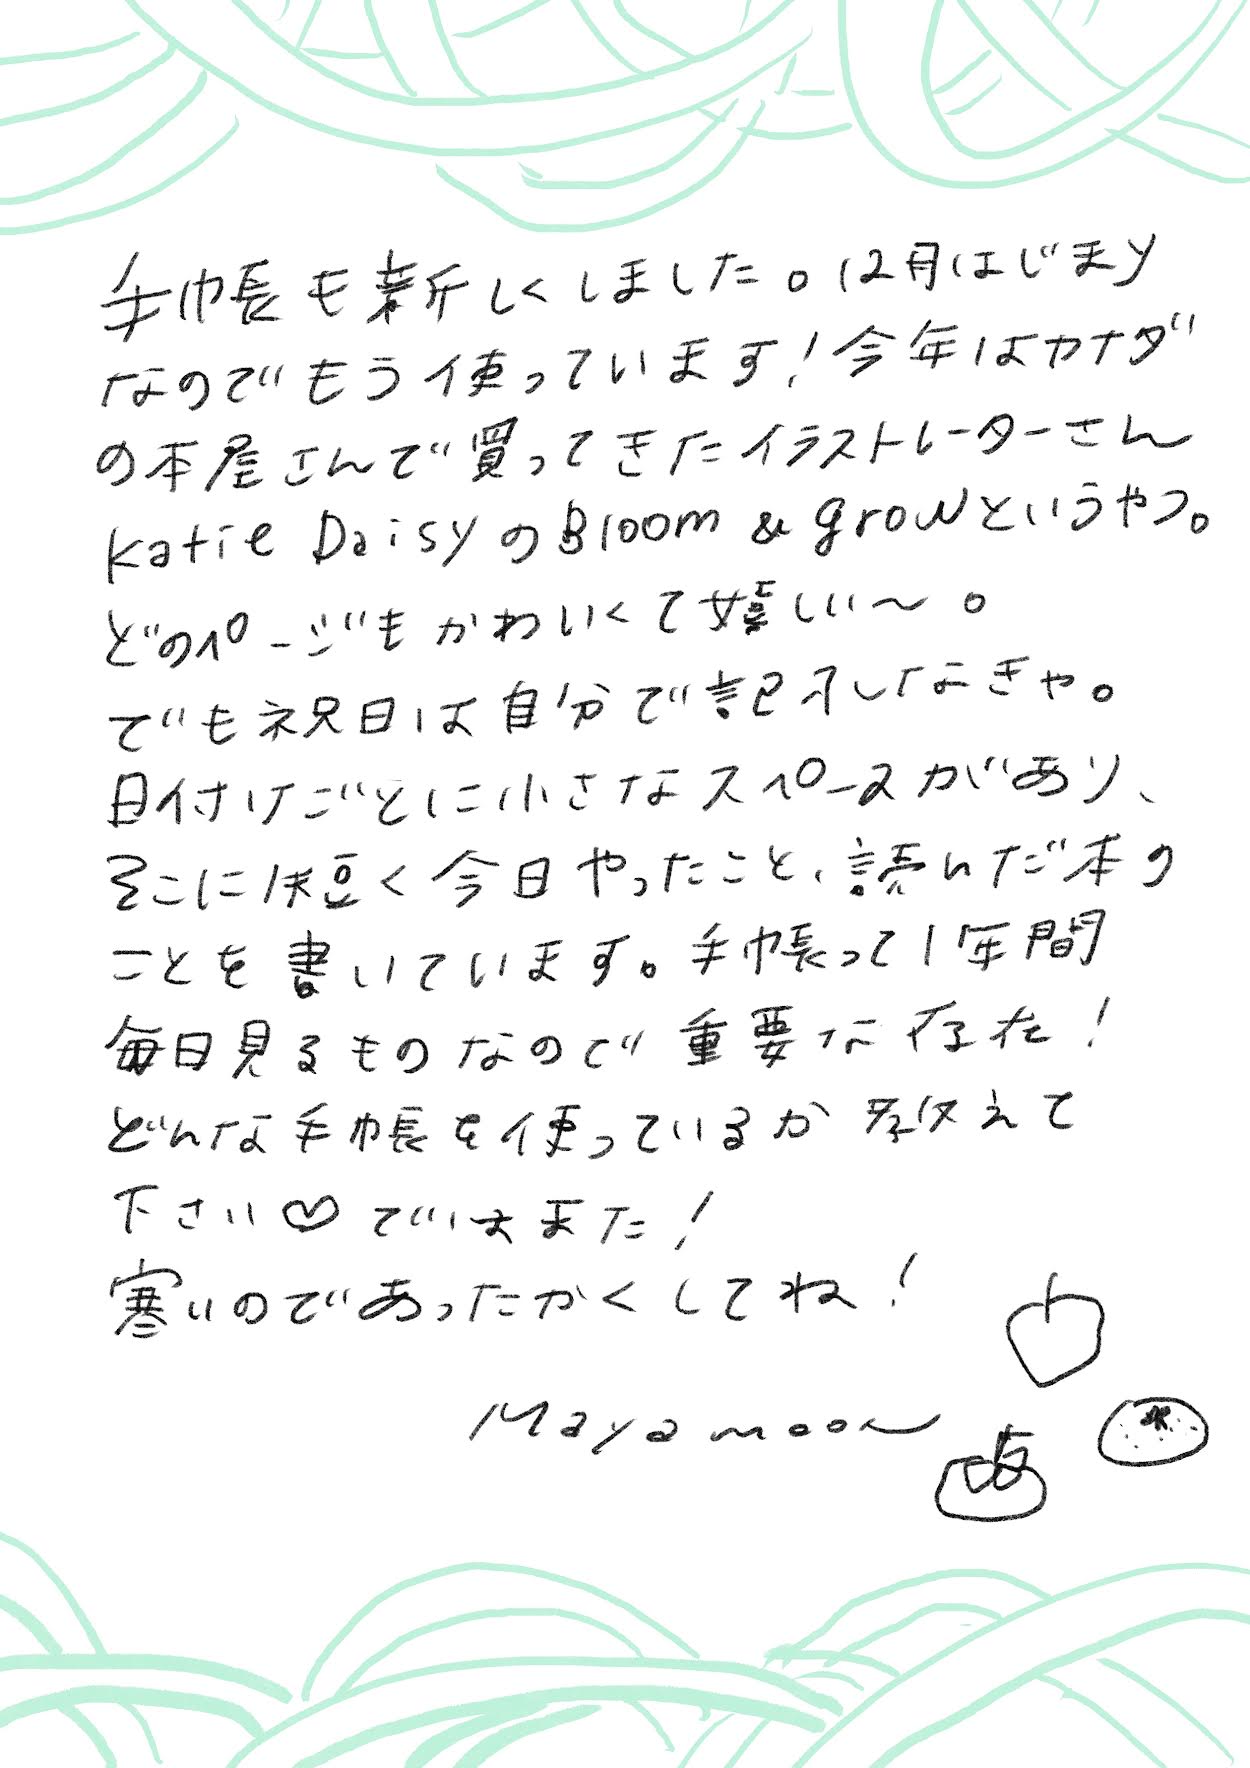 手帳も新しくしました。12月はじまり
なのでもう使っています!今年はカナダ
の本屋さんで買ってきたイラストレーターさん
Katie DaisyのBloom & growというやつ。
どのページもかわいくて嬉しい〜。
でも祝日は自分で記入しなきゃ。
日付けごとに小さなスペースがあり、
そこに短く今日やったこと、読んだ本の
ことを書いています。手帳って1年間
毎日見るものなので重要な存在!
どんな手帳を使っているか教えて
下さい♡ではまた!
寒いのであったかくしてね!
Mayamoon